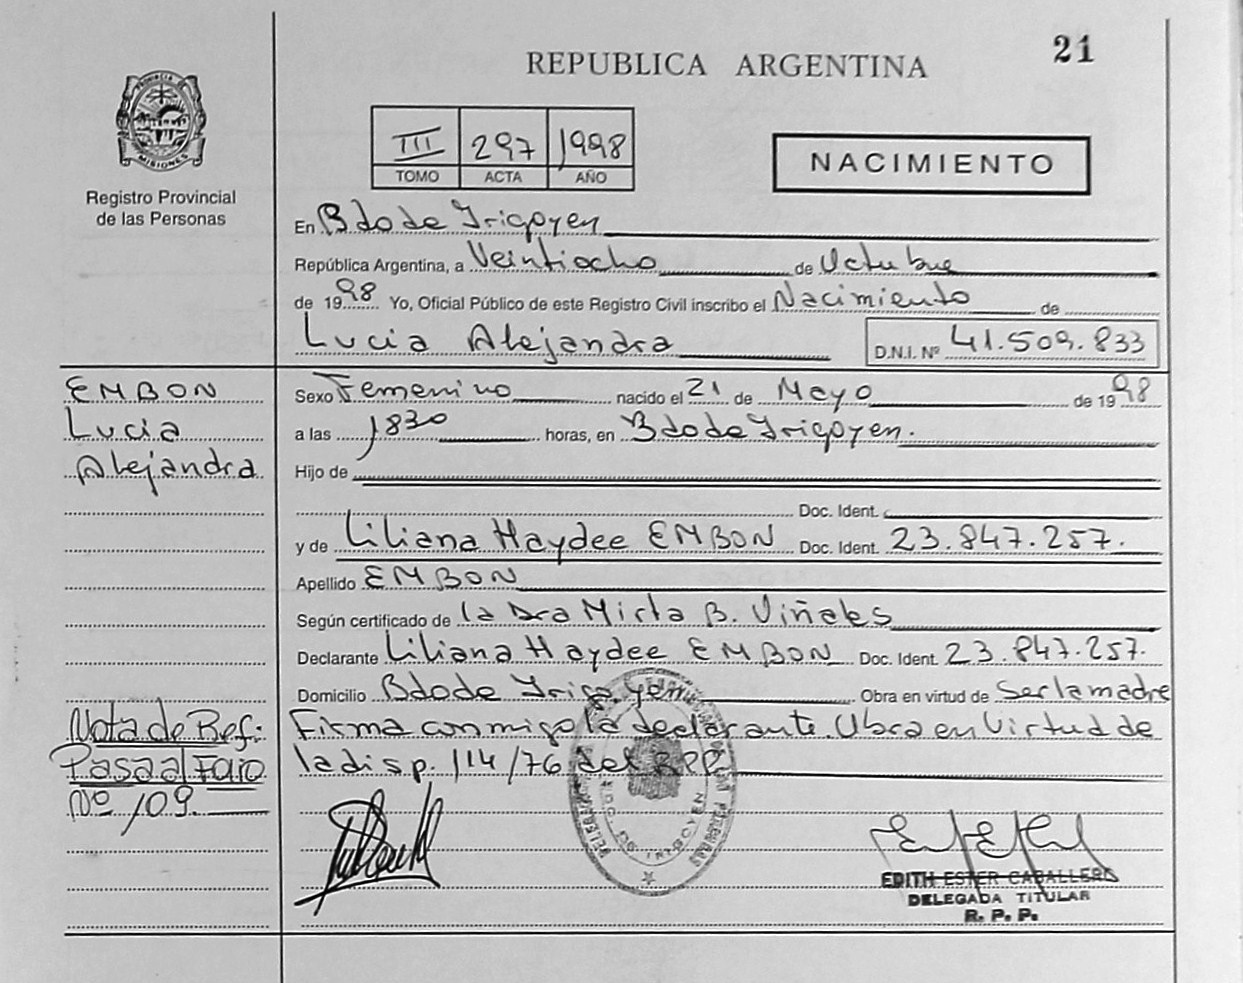 21
REPUBLICA ARGENTINA
PROVINCIA DE MISIONES
Registro Provincial
de las Personas
III 297 1998
TOMO ACTA AÑO
NACIMIENTO
En Bdo de Irigoyen
República Argentina, a Veintiocho de Octubre
de 1998 Yo, Oficial Público de este Registro Civil inscribo el Nacimiento de
Lucia Alejandra D.N.I. Nº 41.509.833
EMBON
Lucia
Alejandra
Sexo Femenino nacido el 21 de Mayo de 1998
a las 1830 horas, en Bdo de Irigoyen.
Hijo de
Doc. Ident.
y de Liliana Haydee EMBON Doc. Ident. 23.847.257.
Apellido EMBON
Según certificado de la Dra Mirta B. Viñales
Declarante Liliana Haydee EMBON Doc. Ident. 23.847.257.
Domicilio Bdo de Irigoyen Obra en virtud de Ser la madre
Nota de Ref:
Pasa al Folio
Nº 109.
Firma conmigo la declarante. Obra en Virtud de
la disp. 114/76 del RPP
BDO. DE IRIGOYEN
EDITH ESTER CABALLERO
DELEGADA TITULAR
R. P. P.